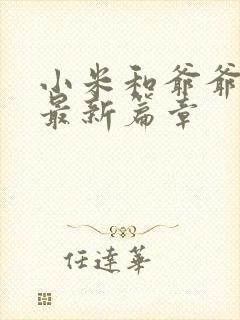 小米和爷爷
最新篇章
任達華